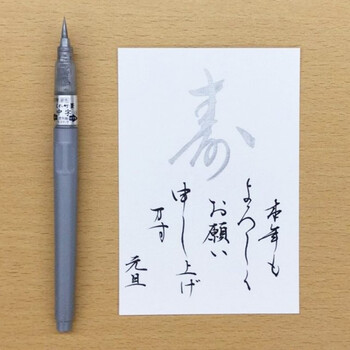 寿
本年も
よろしく
お願い
申し上げ
ます
元旦
中字